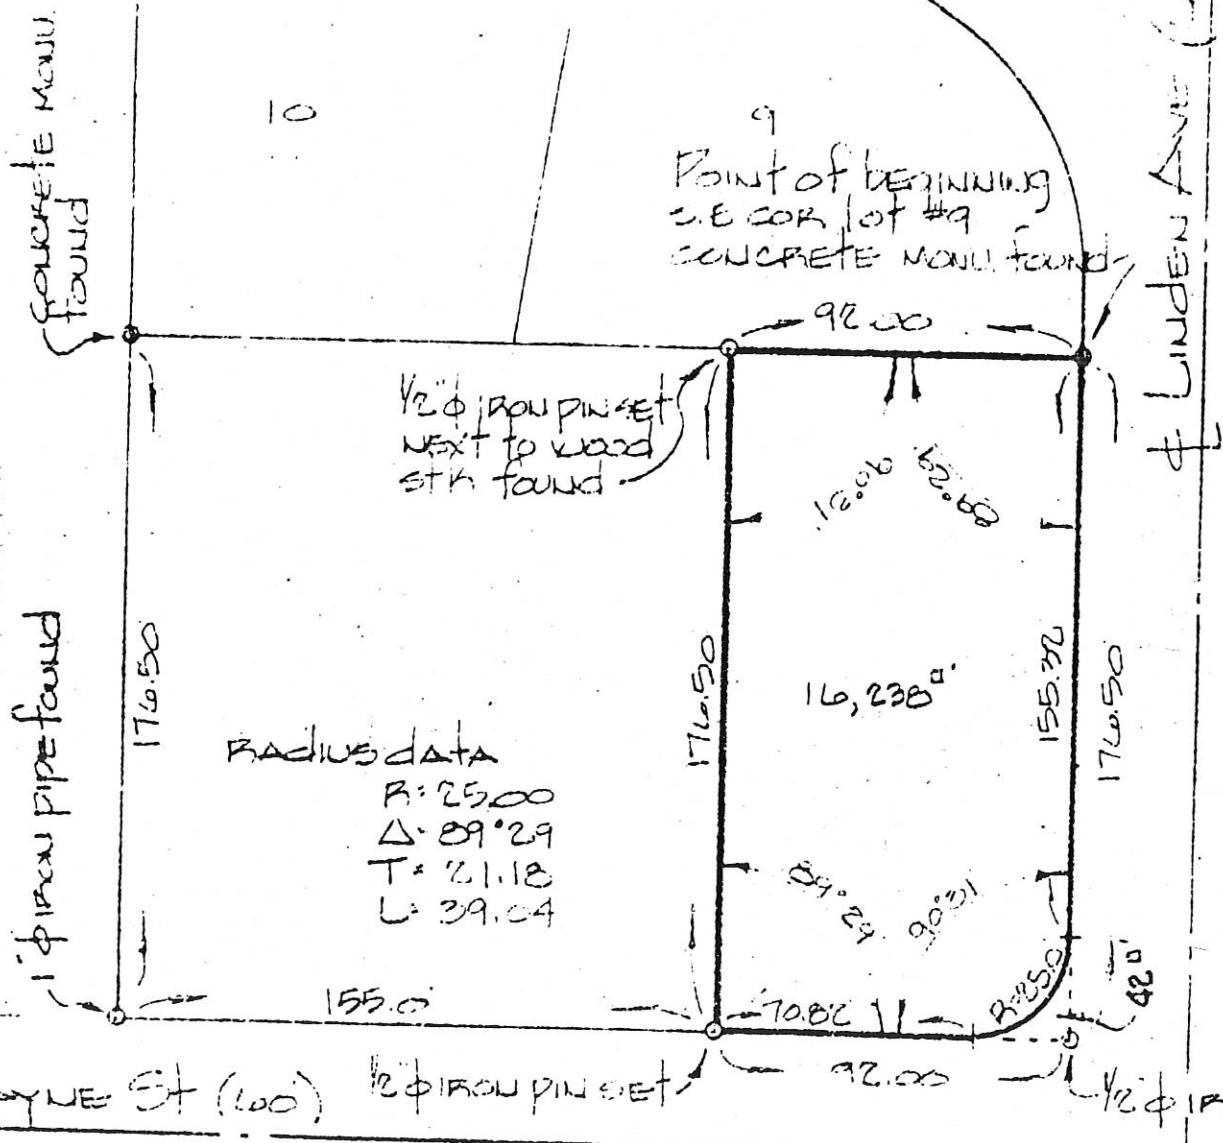 CONCRETE MONU.
found
10
9
Point of beginning
S.E COR lot #9
CONCRETE MONU. found
℄ LINDEN AVE (
92.00
1/2"ϕ IRON PIN SET
NEXT to wood
stk found
90°31'
89°29'
1"ϕ IRON PIPE found
176.50
176.50
16,238□'
155.32
176.50
RADIUS dATA
R= 25.00
Δ= 89°29
T= 21.18
L= 39.04
89°29
90°31
R=25.0
42□'
155.0'
70.82
92.00
YNE St (60')
1/2"ϕ IRON PIN SET
1/2"ϕ IR